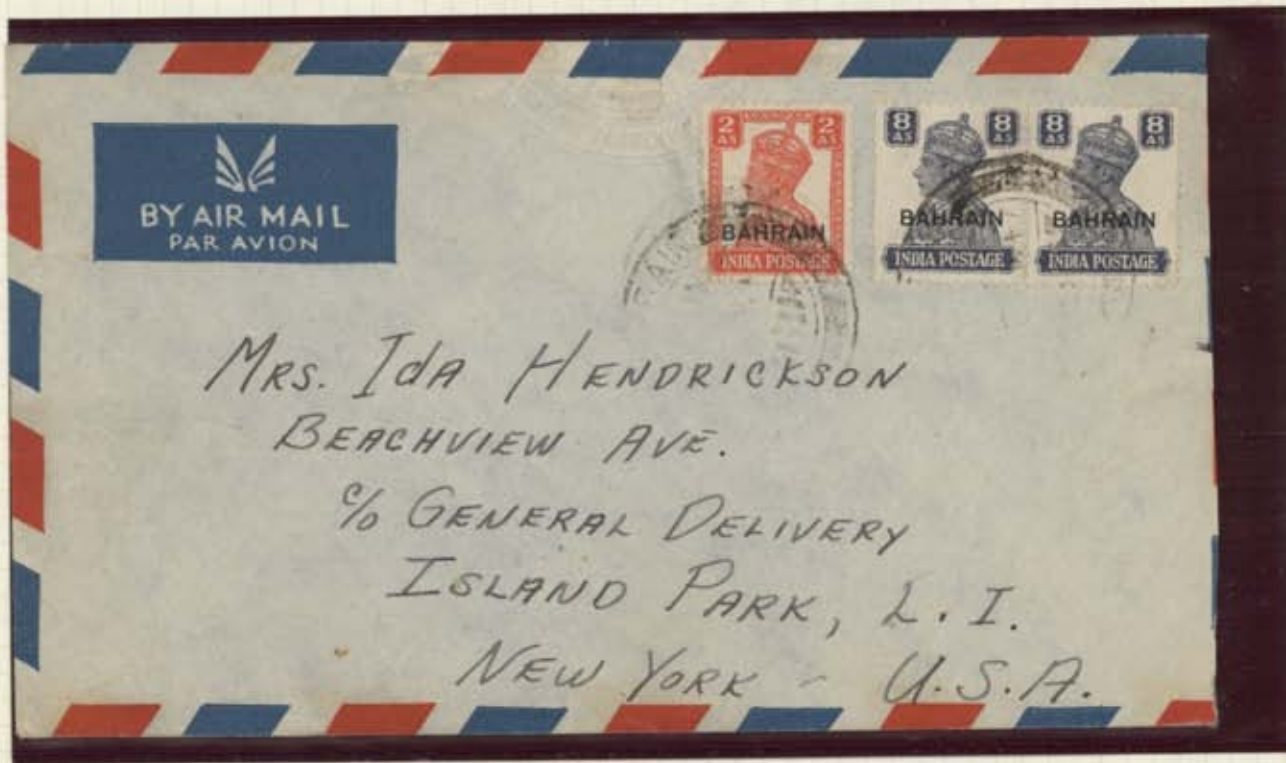 BY AIR MAIL
PAR AVION
2 AS 2 AS
BAHRAIN
INDIA POSTAGE
8 AS 8 AS
BAHRAIN
INDIA POSTAGE
8 AS 8 AS
BAHRAIN
INDIA POSTAGE
MRS. IdA HENDRICKSON
BEACHVIEW AVE.
c/o GENERAL DELIVERY
ISLAND PARK, L.I.
NEW YORK - U.S.A.